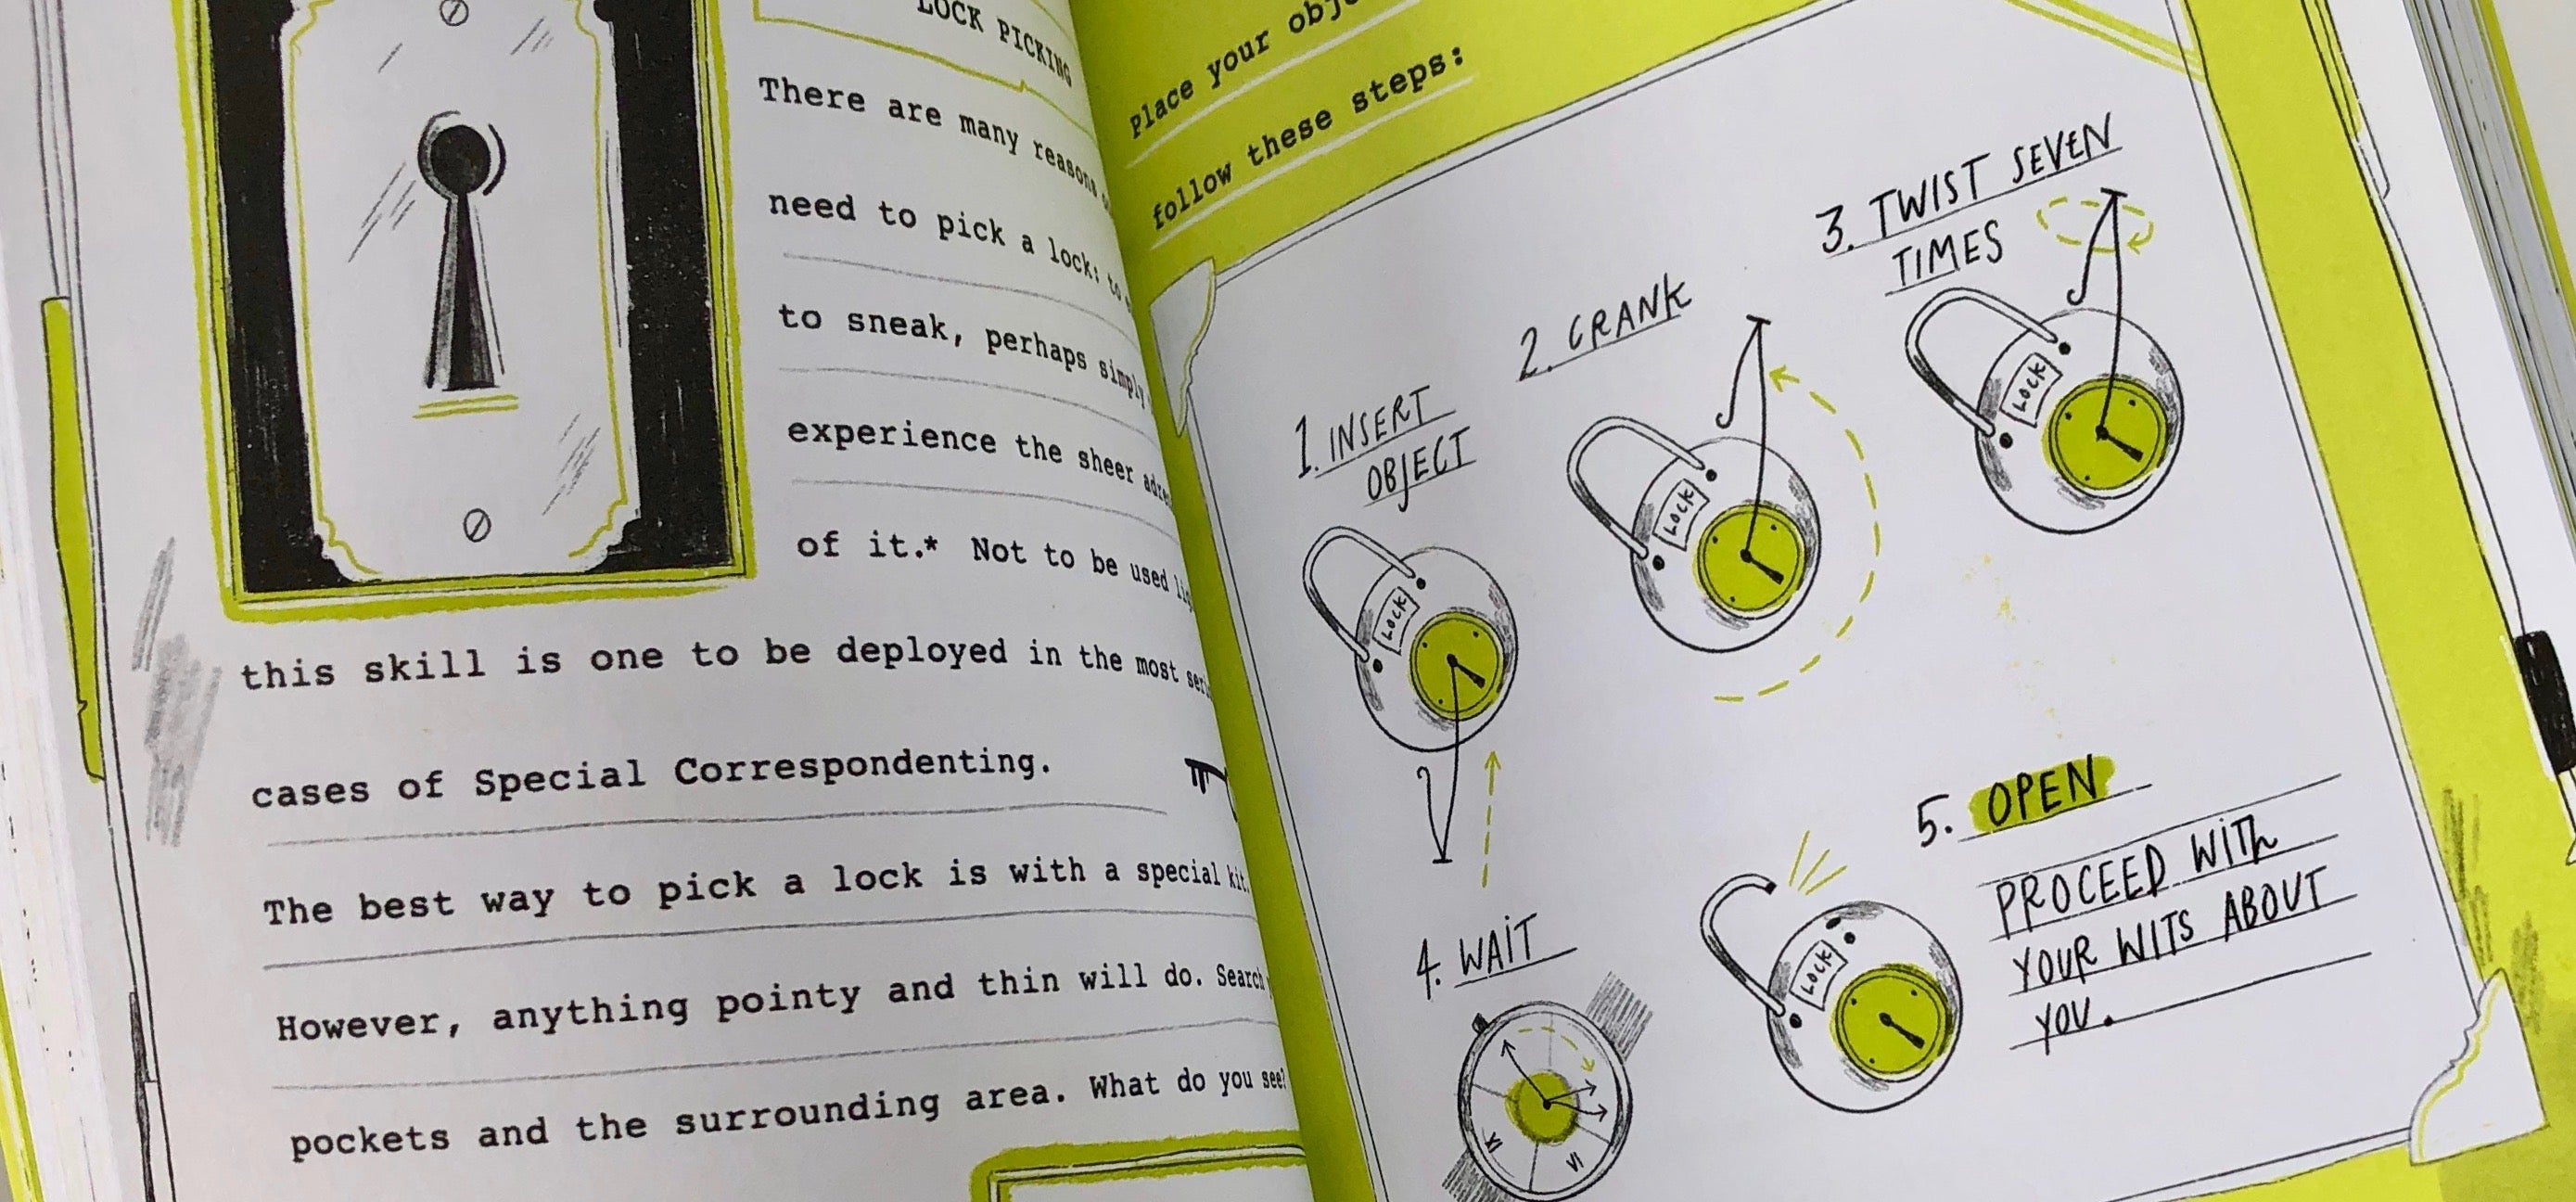 LOCK PICKING
There are many reasons
need to pick a lock: to
to sneak, perhaps simply
experience the sheer
of it.* Not to be used
this skill is one to be deployed in the most
cases of Special Correspondenting.
The best way to pick a lock is with a special kit.
However, anything pointy and thin will do. Search
pockets and the surrounding area. What do you see?
Place your
follow these steps:
1. INSERT
OBJECT
LOCK
2. CRANK
LOCK
3. TWIST SEVEN
TIMES
LOCK
4. WAIT
VI
5. OPEN
PROCEED WITH
YOUR WITS ABOUT
YOU.
LOCK